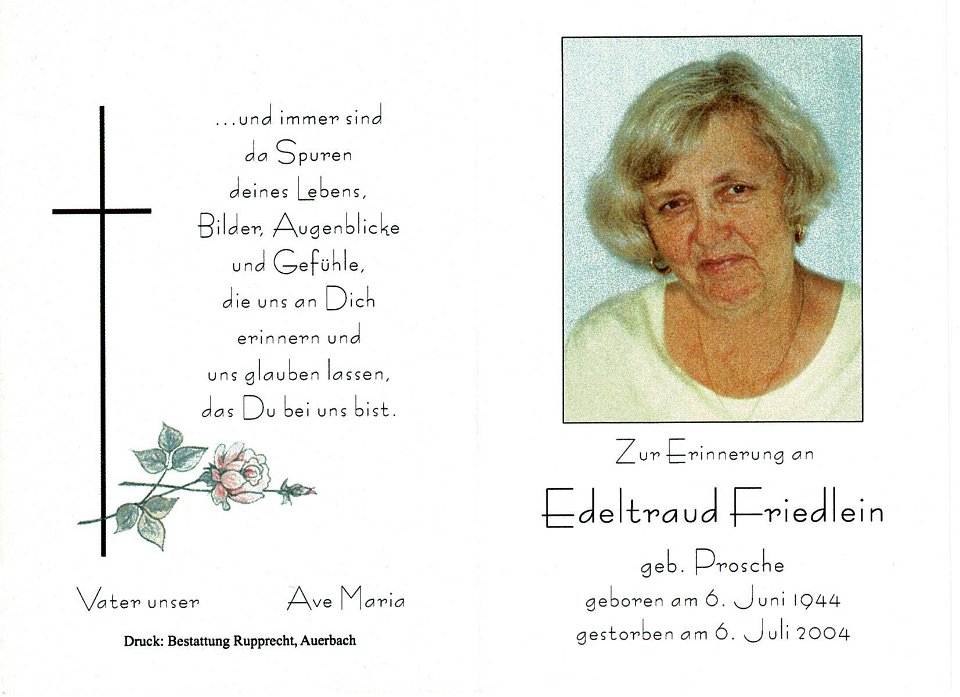 ...und immer sind
da Spuren
deines Lebens,
Bilder, Augenblicke
und Gefühle,
die uns an Dich
erinnern und
uns glauben lassen,
das Du bei uns bist.
Vater unser Ave Maria
Druck: Bestattung Rupprecht, Auerbach
Zur Erinnerung an
Edeltraud Friedlein
geb. Prosche
geboren am 6. Juni 1944
gestorben am 6. Juli 2004